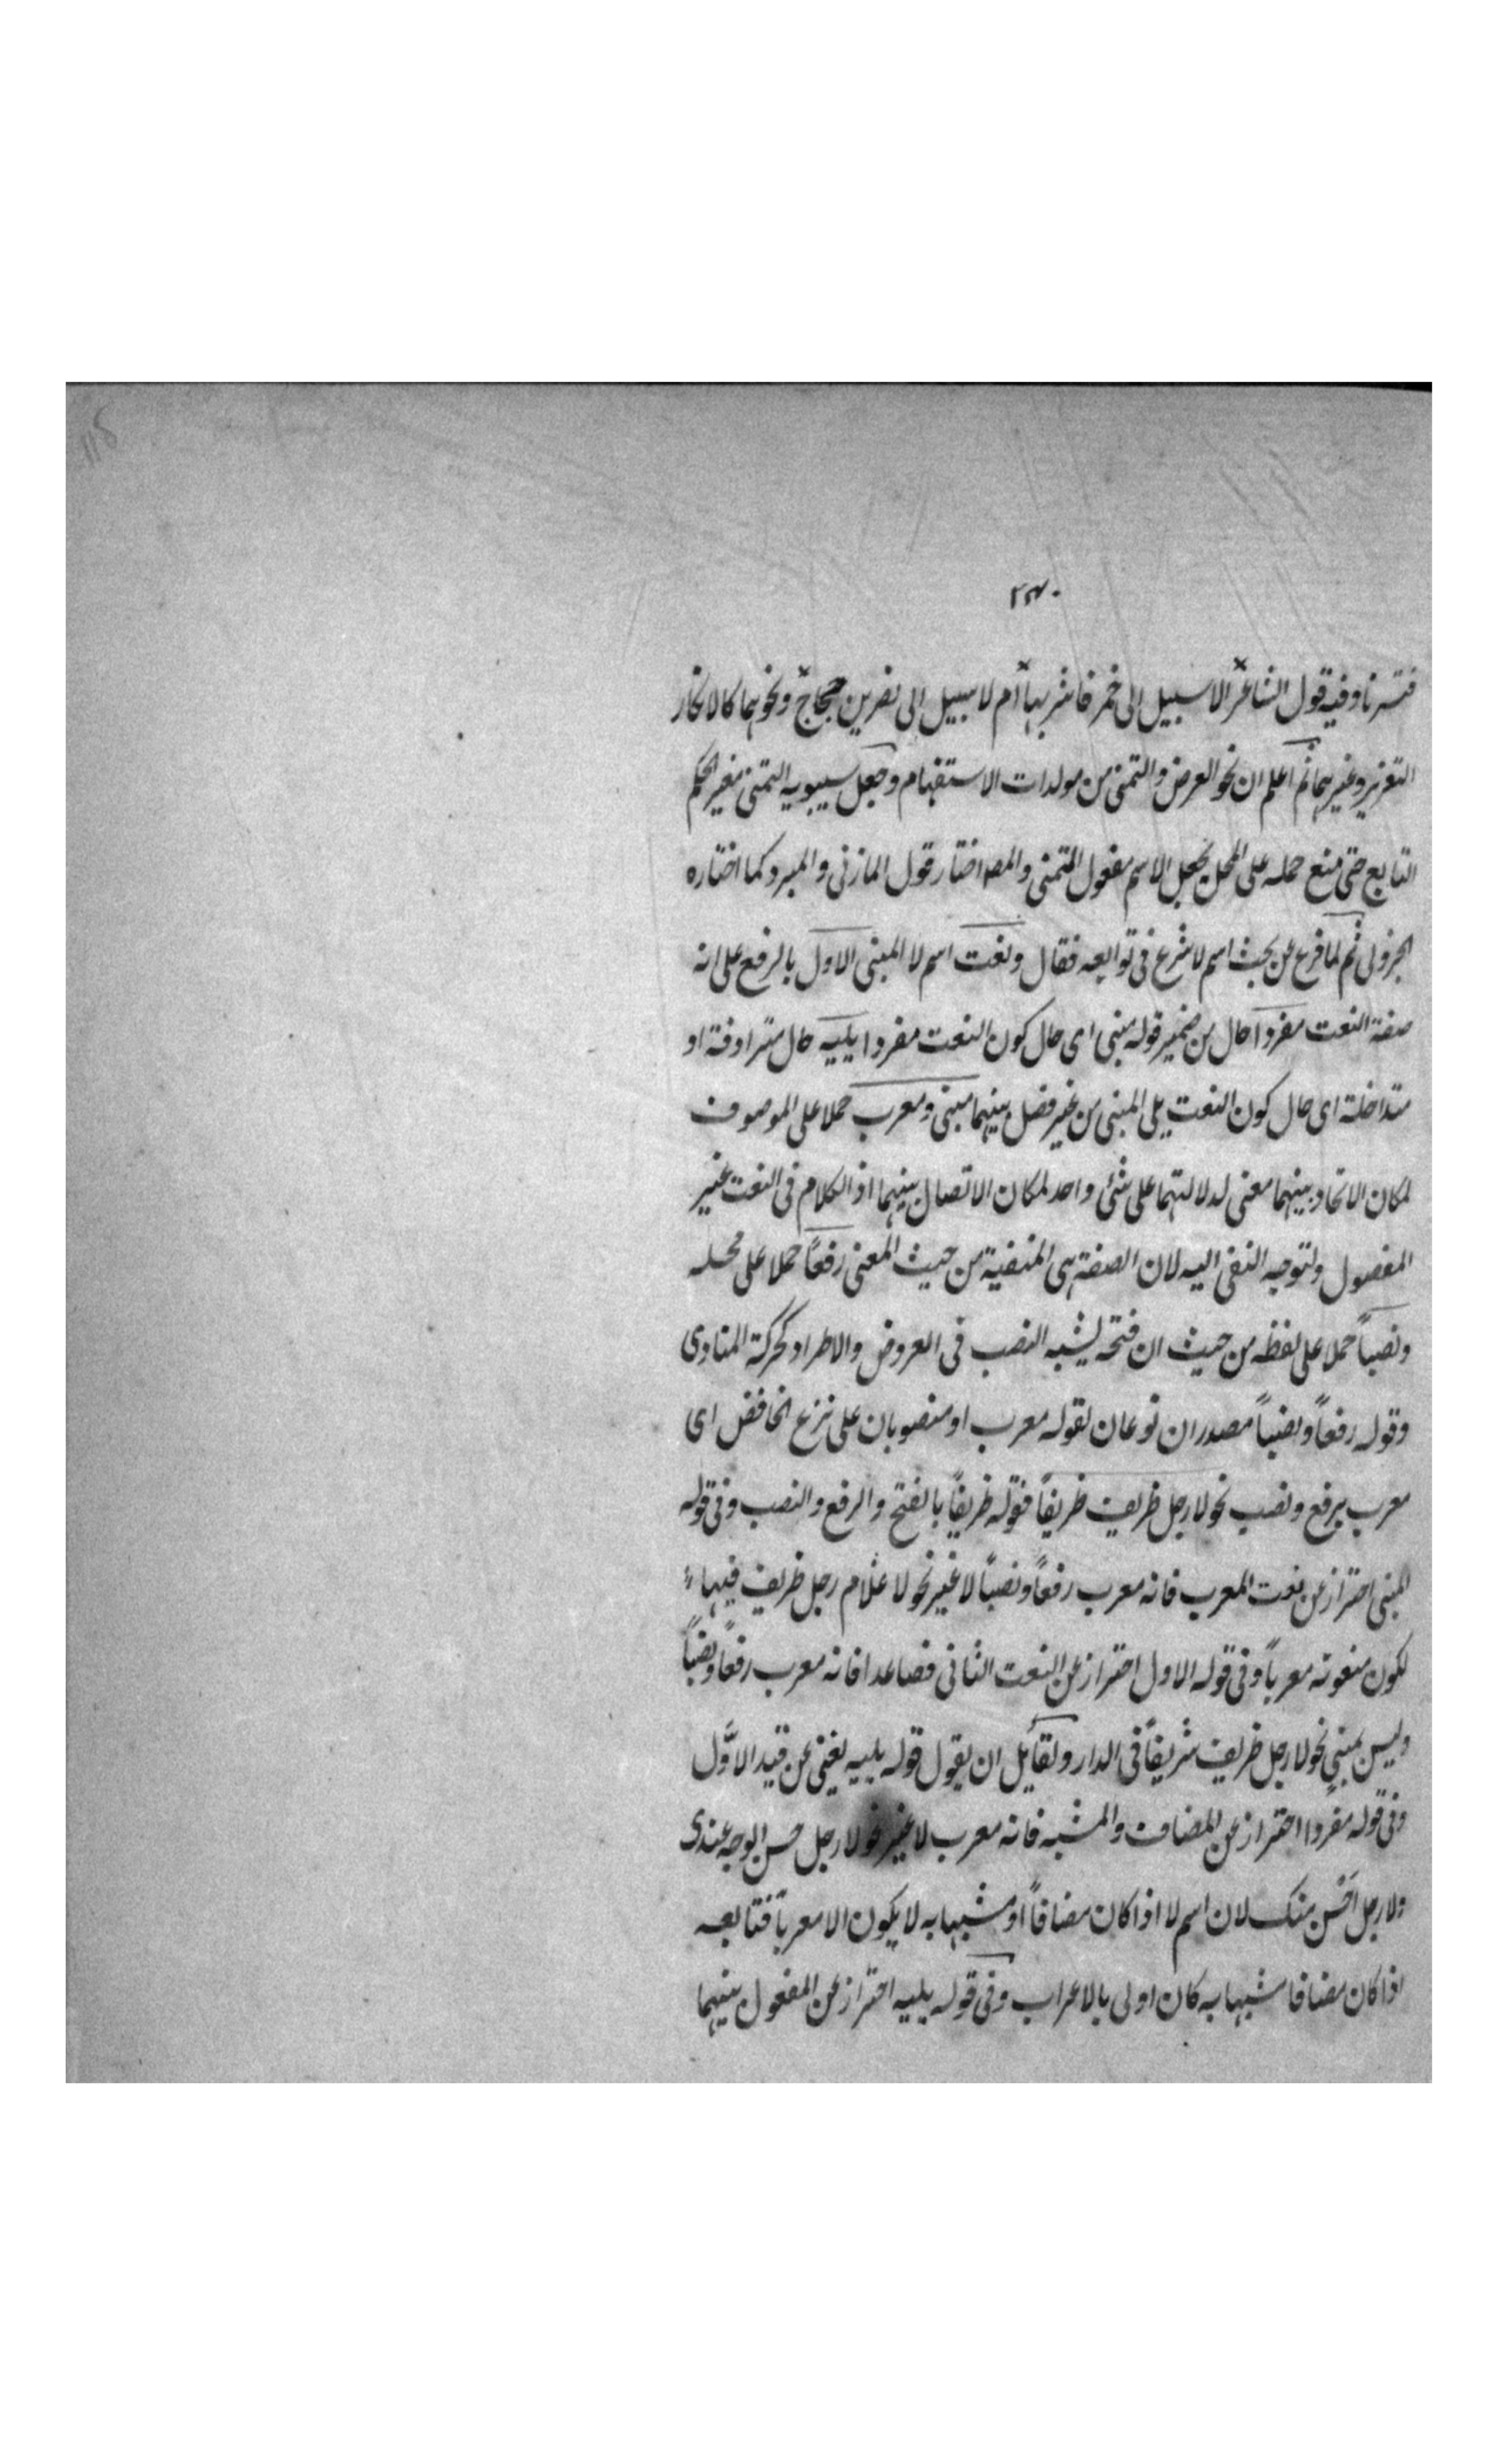 ٢٣٠
فتسرنا وفيه قول الشاعر الا سبيل الى خمر فاشربها ام لا سبيل الى نصر بن حجاج ونحوهما كالانكار
التعزير وغيرهما ثم اعلم ان نحو العرض والتمنى من مولدات الاستفهام وجعل سيبويه التمنى مغير الحكم
التابع حتى منع حمله على المحل بجعل الاسم مفعول المتمنى والمصـ اختار قول المازنى والمبرد كما اختاره
الجزولى ثم لما فرغ عن بحث اسم لا شرع فى توابعه فقال ونعت اسم لا المبنى الاول بالرفع على انه
صفة النعت مفردا حال من ضمير قوله مبنى اى حال كون النعت مفردا يليه حال مترادفة او
متداخلة اى حال كون النعت يلى المبنى من غير فصل بينهما مبنى ومعرب حملا على الموصوف
لمكان الاتحاد بينهما معنى لدلالتهما على شئ واحد لمكان الاتصال بينهما اذ الكلام فى النعت غير
المفصول ولتوجه النفى اليه لان الصفة هى المنفية من حيث المعنى رفعاً حملا على محله
ونصباً حملا على لفظه من حيث ان فتحه يشبه النصب فى العروض والاطراد كحركة المنادى
وقوله رفعاً ونصباً مصدران نوعان لقوله معرب او منصوبان على نزع الخافض اى
معرب برفع ونصب نحو لا رجل ظريف ظريفاً فقوله ظريفاً بالفتح والرفع والنصب وفى قوله
المبنى احتراز عن نعت المعرب فانه معرب رفعاً ونصباً لا غير نحو لا غلام رجل ظريف فيها
لكون منعوته معرباً وفى قوله الاول احتراز عن النعت الثانى فصاعدا فانه معرب رفعاً ونصباً
وليس بمبنى نحو لا رجل ظريف شريفاً فى الدار ولقائل ان يقول قوله يليه يغنى عن قيد الاوّل
وفى قوله مفردا احتراز عن المضاف والمشبه فانه معرب لا غير نحو لا رجل حسن الوجه عندى
ولا رجل احسن منك لان اسم لا اذا كان مضافاً او مشبها به لا يكون الا معرباً فتابعه
اذا كان مضافا مشبها به كان اولى بالاعراب وفى قوله يليه احتراز عن المفعول بينهما